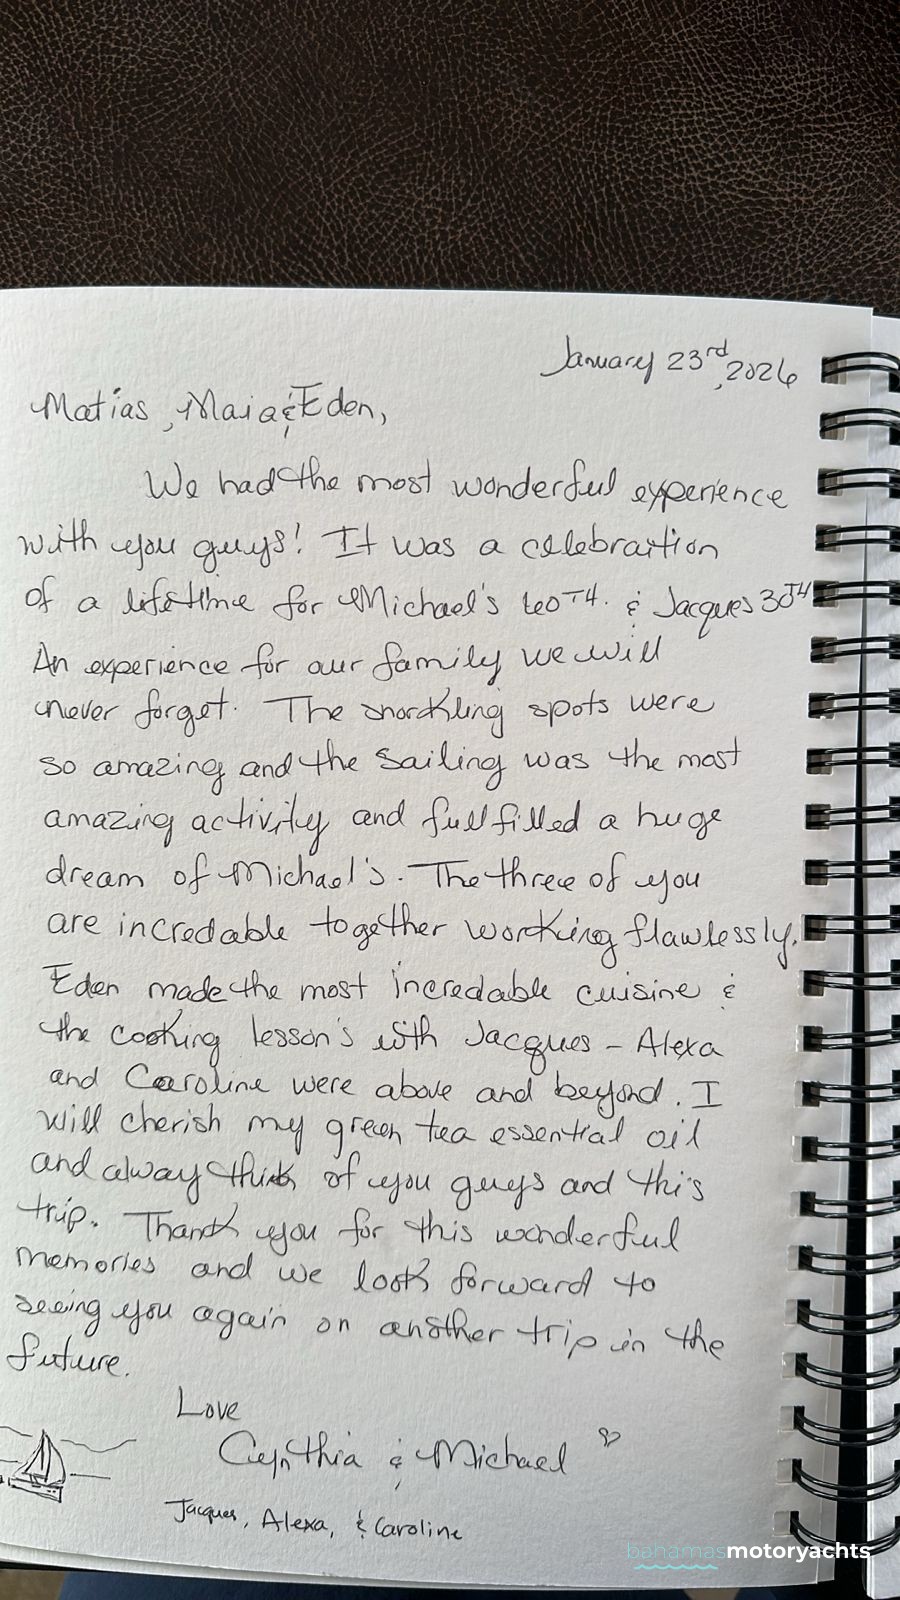 January 23rd, 2026
Matias, Maia & Eden,
We had the most wonderful experience
with you guys! It was a celebraition
of a lifetime for Michael's 60TH. & Jacques 30TH
An experience for our family we will
never forget. The snorkling spots were
so amazing and the sailing was the most
amazing activity and fullfilled a huge
dream of Michael's. The three of you
are incredable together working flawlessly.
Eden made the most incredable cuisine &
the cooking lesson's with Jacques - Alexa
and Caroline were above and beyond. I
will cherish my green tea essential oil
and alway think of you guys and this
trip. Thank you for this wonderful
memories and we look forward to
seeing you again on another trip in the
future.
Love
Cynthia & Michael
Jacques, Alexa, & Caroline
bahamasmotoryachts